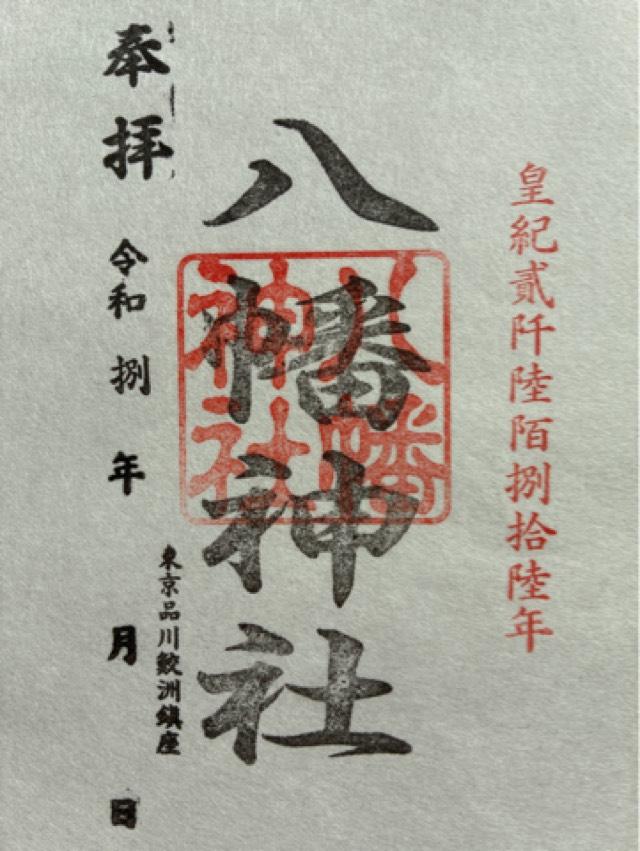 皇紀貳阡陸陌捌拾陸年
八幡神社
八幡
神社
奉拝
東京品川鮫洲鎮座
令和捌年 月 日